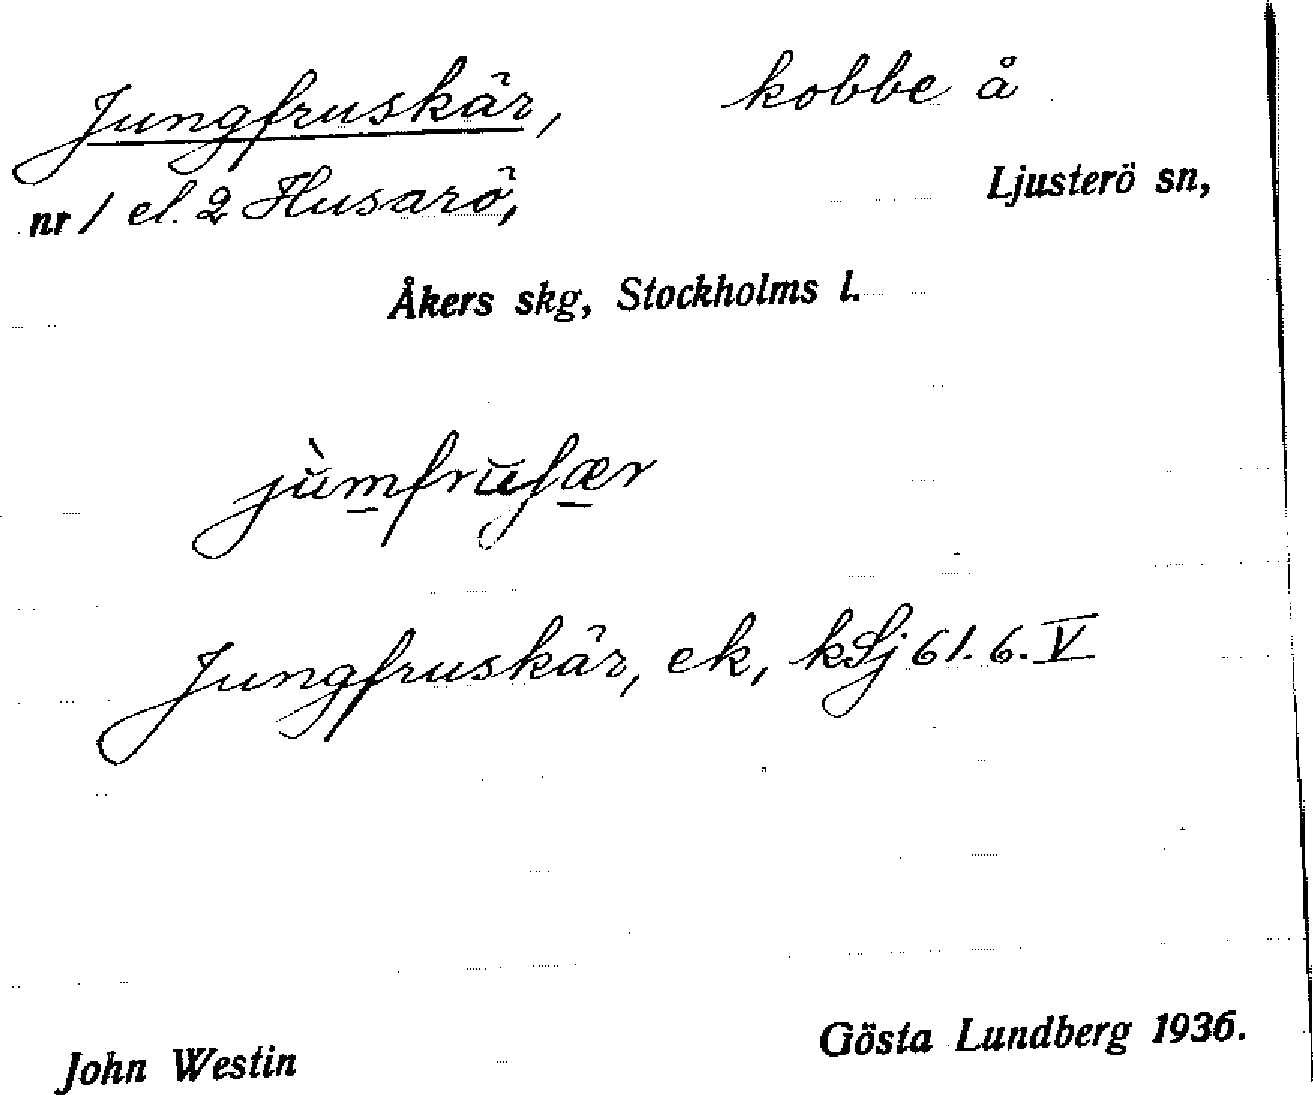 Jungfruskär, kobbe å
Ljusterö sn,
nr 1 el. 2 Husarö,
Åkers skg, Stockholms l.
Jungfruskär, ek, kSj 61. 6. V
John Westin
Gösta Lundberg 1936.